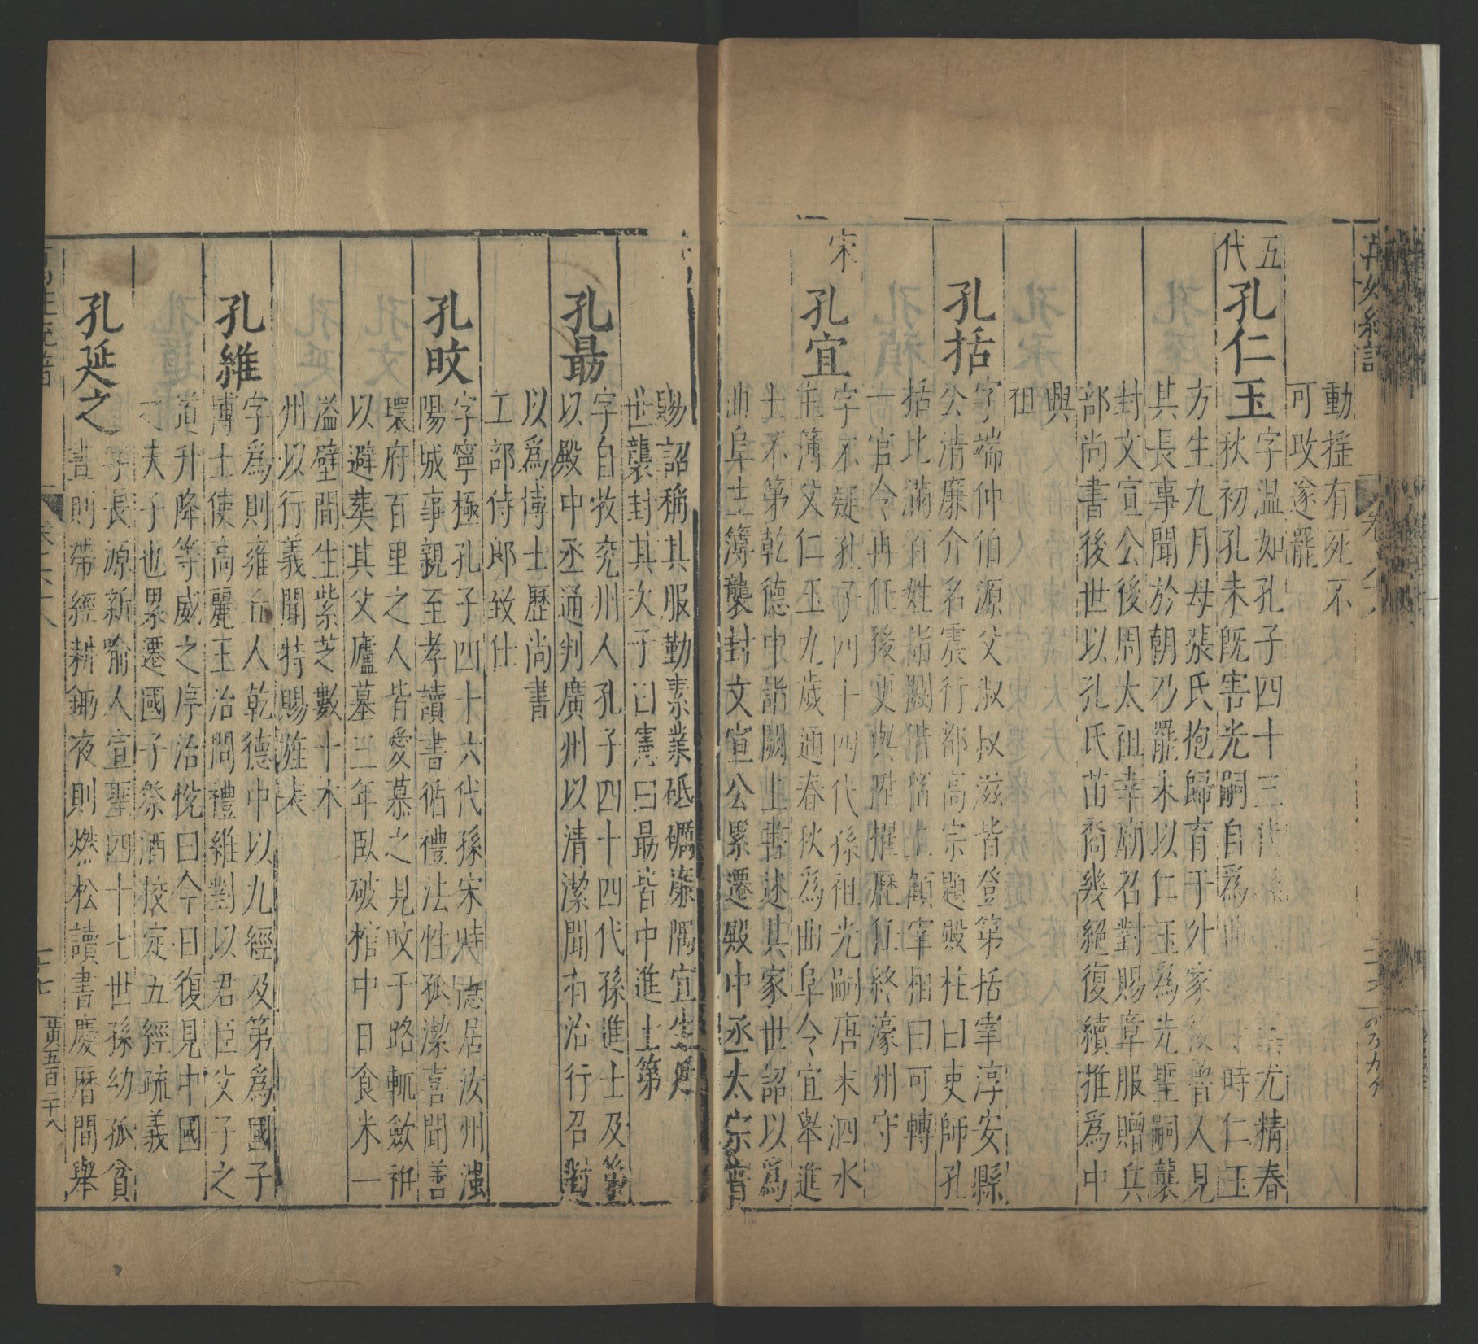 動搖有死不
可攻遂罷
五代
孔仁玉
字温如孔子四十三世 尤精春
秋初孔未既害光嗣自爲 時仁玉
方生九月母張氏抱歸育于外家 魯人見
其長事聞於朝乃罷末以仁玉爲先聖嗣襲
封文宣公後周太祖幸廟召對賜章服贈兵
部尚書後世以孔氏苗裔幾絕復續推爲中
興
祖
孔括
字端仲伯源父淑叔滋皆登第括宰淳安縣
公清廉介名震行都高宗題殿柱曰吏師孔
括比滿百姓詣闕借留上顧宰相曰可轉
一官令再任後吏與 歷任終濠州守
宋
孔宜
字不疑孔子四十四代孫祖光嗣唐末泗水
主簿父仁玉九歲通春秋爲曲阜令宜舉進
士不第乾德中詣闕上書述其家世詔以爲
曲阜主簿襲封文宣公累遷殿中丞太宗嘗
賜詔稱其服勤素業砥礪廉隅宜生延
世襲封其次子曰憲曰最皆中進士第
孔最
字自牧兖州人孔子四十四代孫進士及第
以殿中丞通判廣州以清潔聞有治行召對
以爲博士歷尚書
工部侍郎致仕
孔旼
字寧極孔子四十六代孫宋時隱居汝州溰
陽城事親至孝讀書循禮法性孤潔喜聞善
環府百里之人皆愛慕之見旼于路輒歛袵
以避葬其父廬墓三年臥破棺中日食米一
溢壁間生紫芝數十本
州以行義聞特賜旌表
孔維
字爲則雍丘人乾德中以九經及第爲國子
博士使高麗王治問禮維對以君臣父子之
道升降等威之序治悅曰今日復見中國
之夫子也累遷國子祭酒校定五經疏義
孔延之
字長源新喻人宣聖四十七世孫幼孤貧
晝則帶經耕鋤夜則燃松讀書慶曆間舉